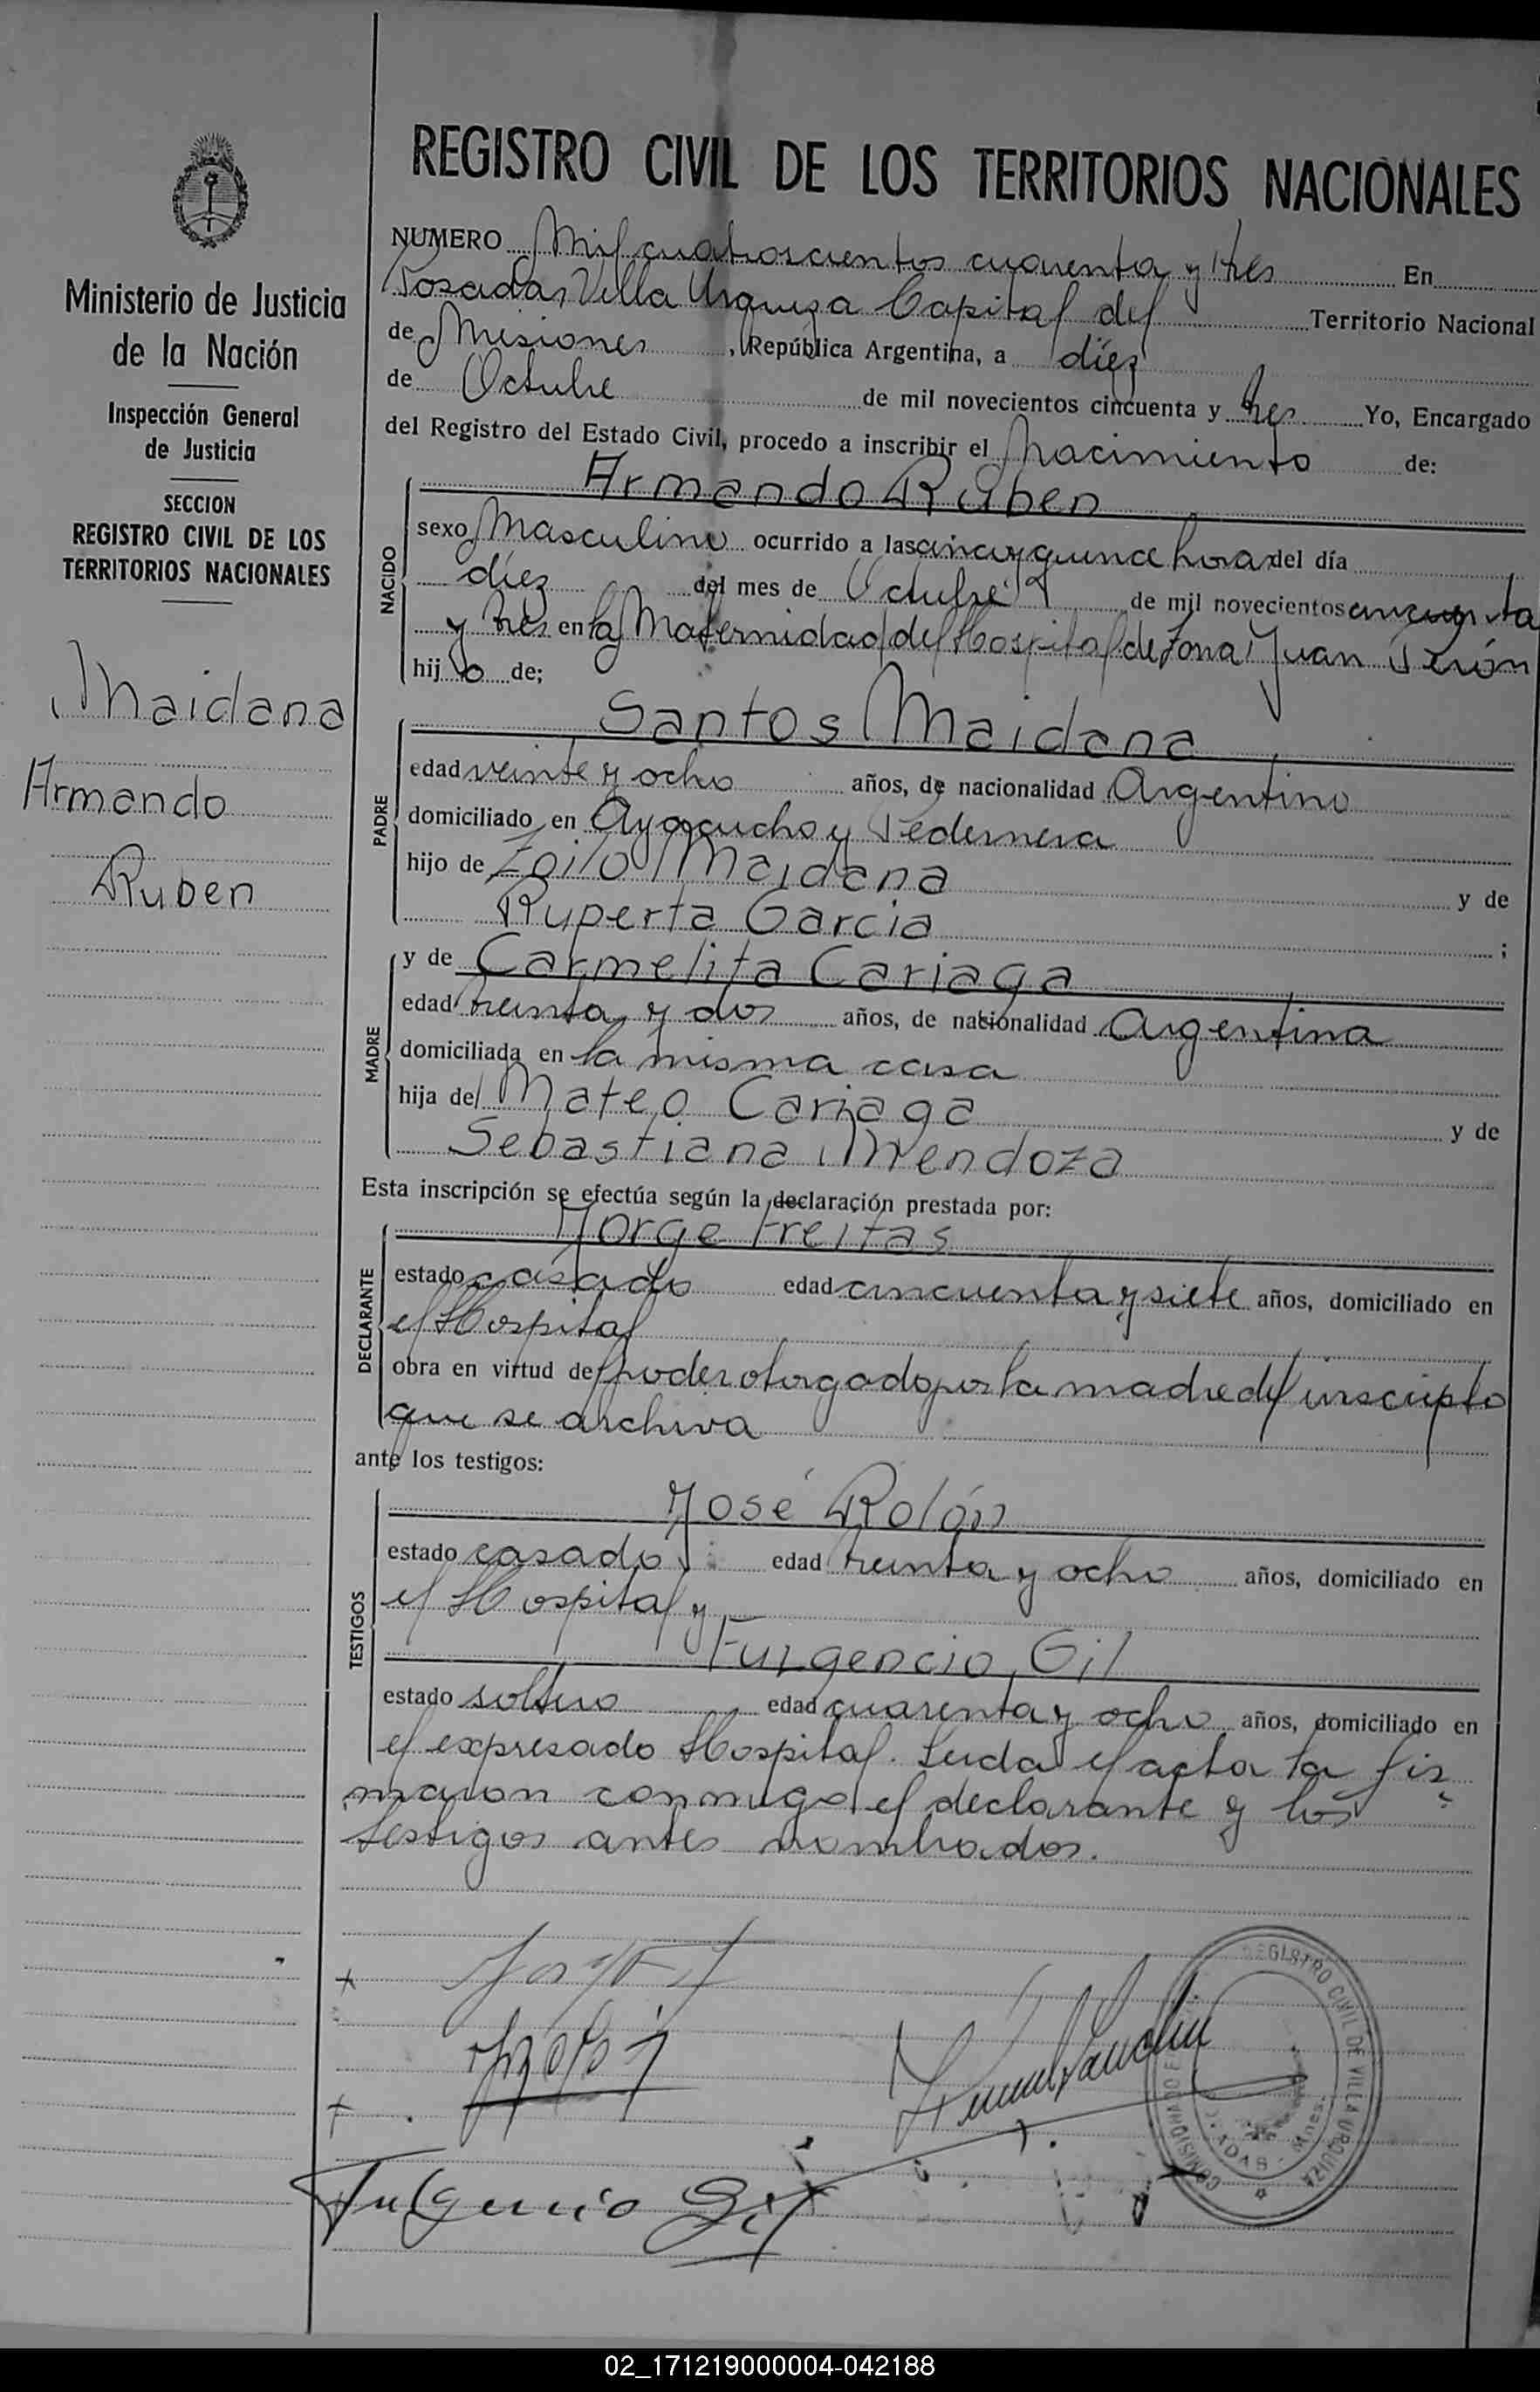 REGISTRO CIVIL DE LOS TERRITORIOS NACIONALES
Ministerio de Justicia
de la Nación
Inspección General
de Justicia
SECCION
REGISTRO CIVIL DE LOS
TERRITORIOS NACIONALES
Maidana
Armando
Ruben
NUMERO Mil cuatroscientos cuarenta y tres En
Posadas Villa Urquiza Capital del Territorio Nacional
de Misiones, República Argentina, a diez
de Octubre de mil novecientos cincuenta y tres Yo, Encargado
del Registro del Estado Civil, procedo a inscribir el Nacimiento de:
NACIDO
Armando Ruben
sexo Masculino ocurrido a las cinco y quince horas del día
diez del mes de Octubre de mil novecientos cincuenta
y tres en la Maternidad del Hospital de Zona Juan Perón
hijo de;
PADRE
Santos Maidana
edad veinte y ocho años, de nacionalidad Argentino
domiciliado en Ayacucho y Pedernera
hijo de Zoilo Maidana y de
Ruperta Garcia ;
MADRE
y de Carmelita Cariaga
edad treinta y dos años, de nacionalidad Argentina
domiciliada en la misma casa
hija de Mateo Cariaga y de
Sebastiana Mendoza
Esta inscripción se efectúa según la declaración prestada por:
DECLARANTE
Jorge Freitas
estado casado edad cincuenta y siete años, domiciliado en
el Hospital
obra en virtud del poder otorgado por la madre del inscripto
que se archiva
ante los testigos:
TESTIGOS
José Rolón
estado casado edad treinta y ocho años, domiciliado en
el Hospital y
Fulgencio Gil
estado soltero edad cuarenta y ocho años, domiciliado en
el expresado Hospital. Leida el acta la fir-
maron conmigo el declarante y los
testigos antes nombrados.
Fulgencio Gil
REGISTRO CIVIL DE VILLA URQUIZA
02_171219000004-042188